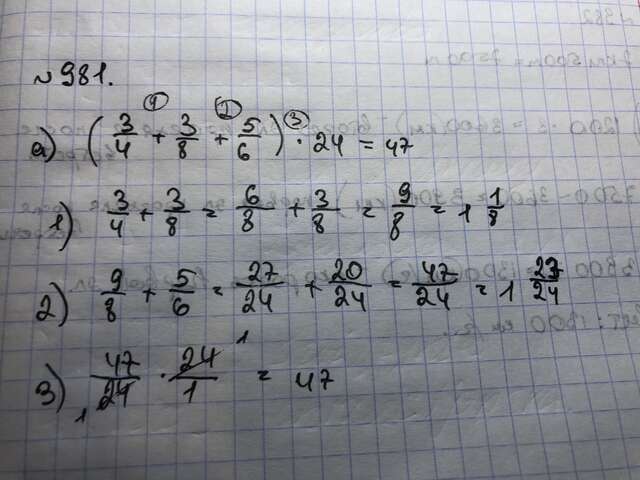 №981.
а) (3/4 + 3/8 + 5/6) · 24 = 47
① ② ③
1) 3/4 + 3/8 = 6/8 + 3/8 = 9/8 = 1 1/8
2) 9/8 + 5/6 = 27/24 + 20/24 = 47/24 = 1 23/24
3) 47/24 · 24/1 = 47
1 1